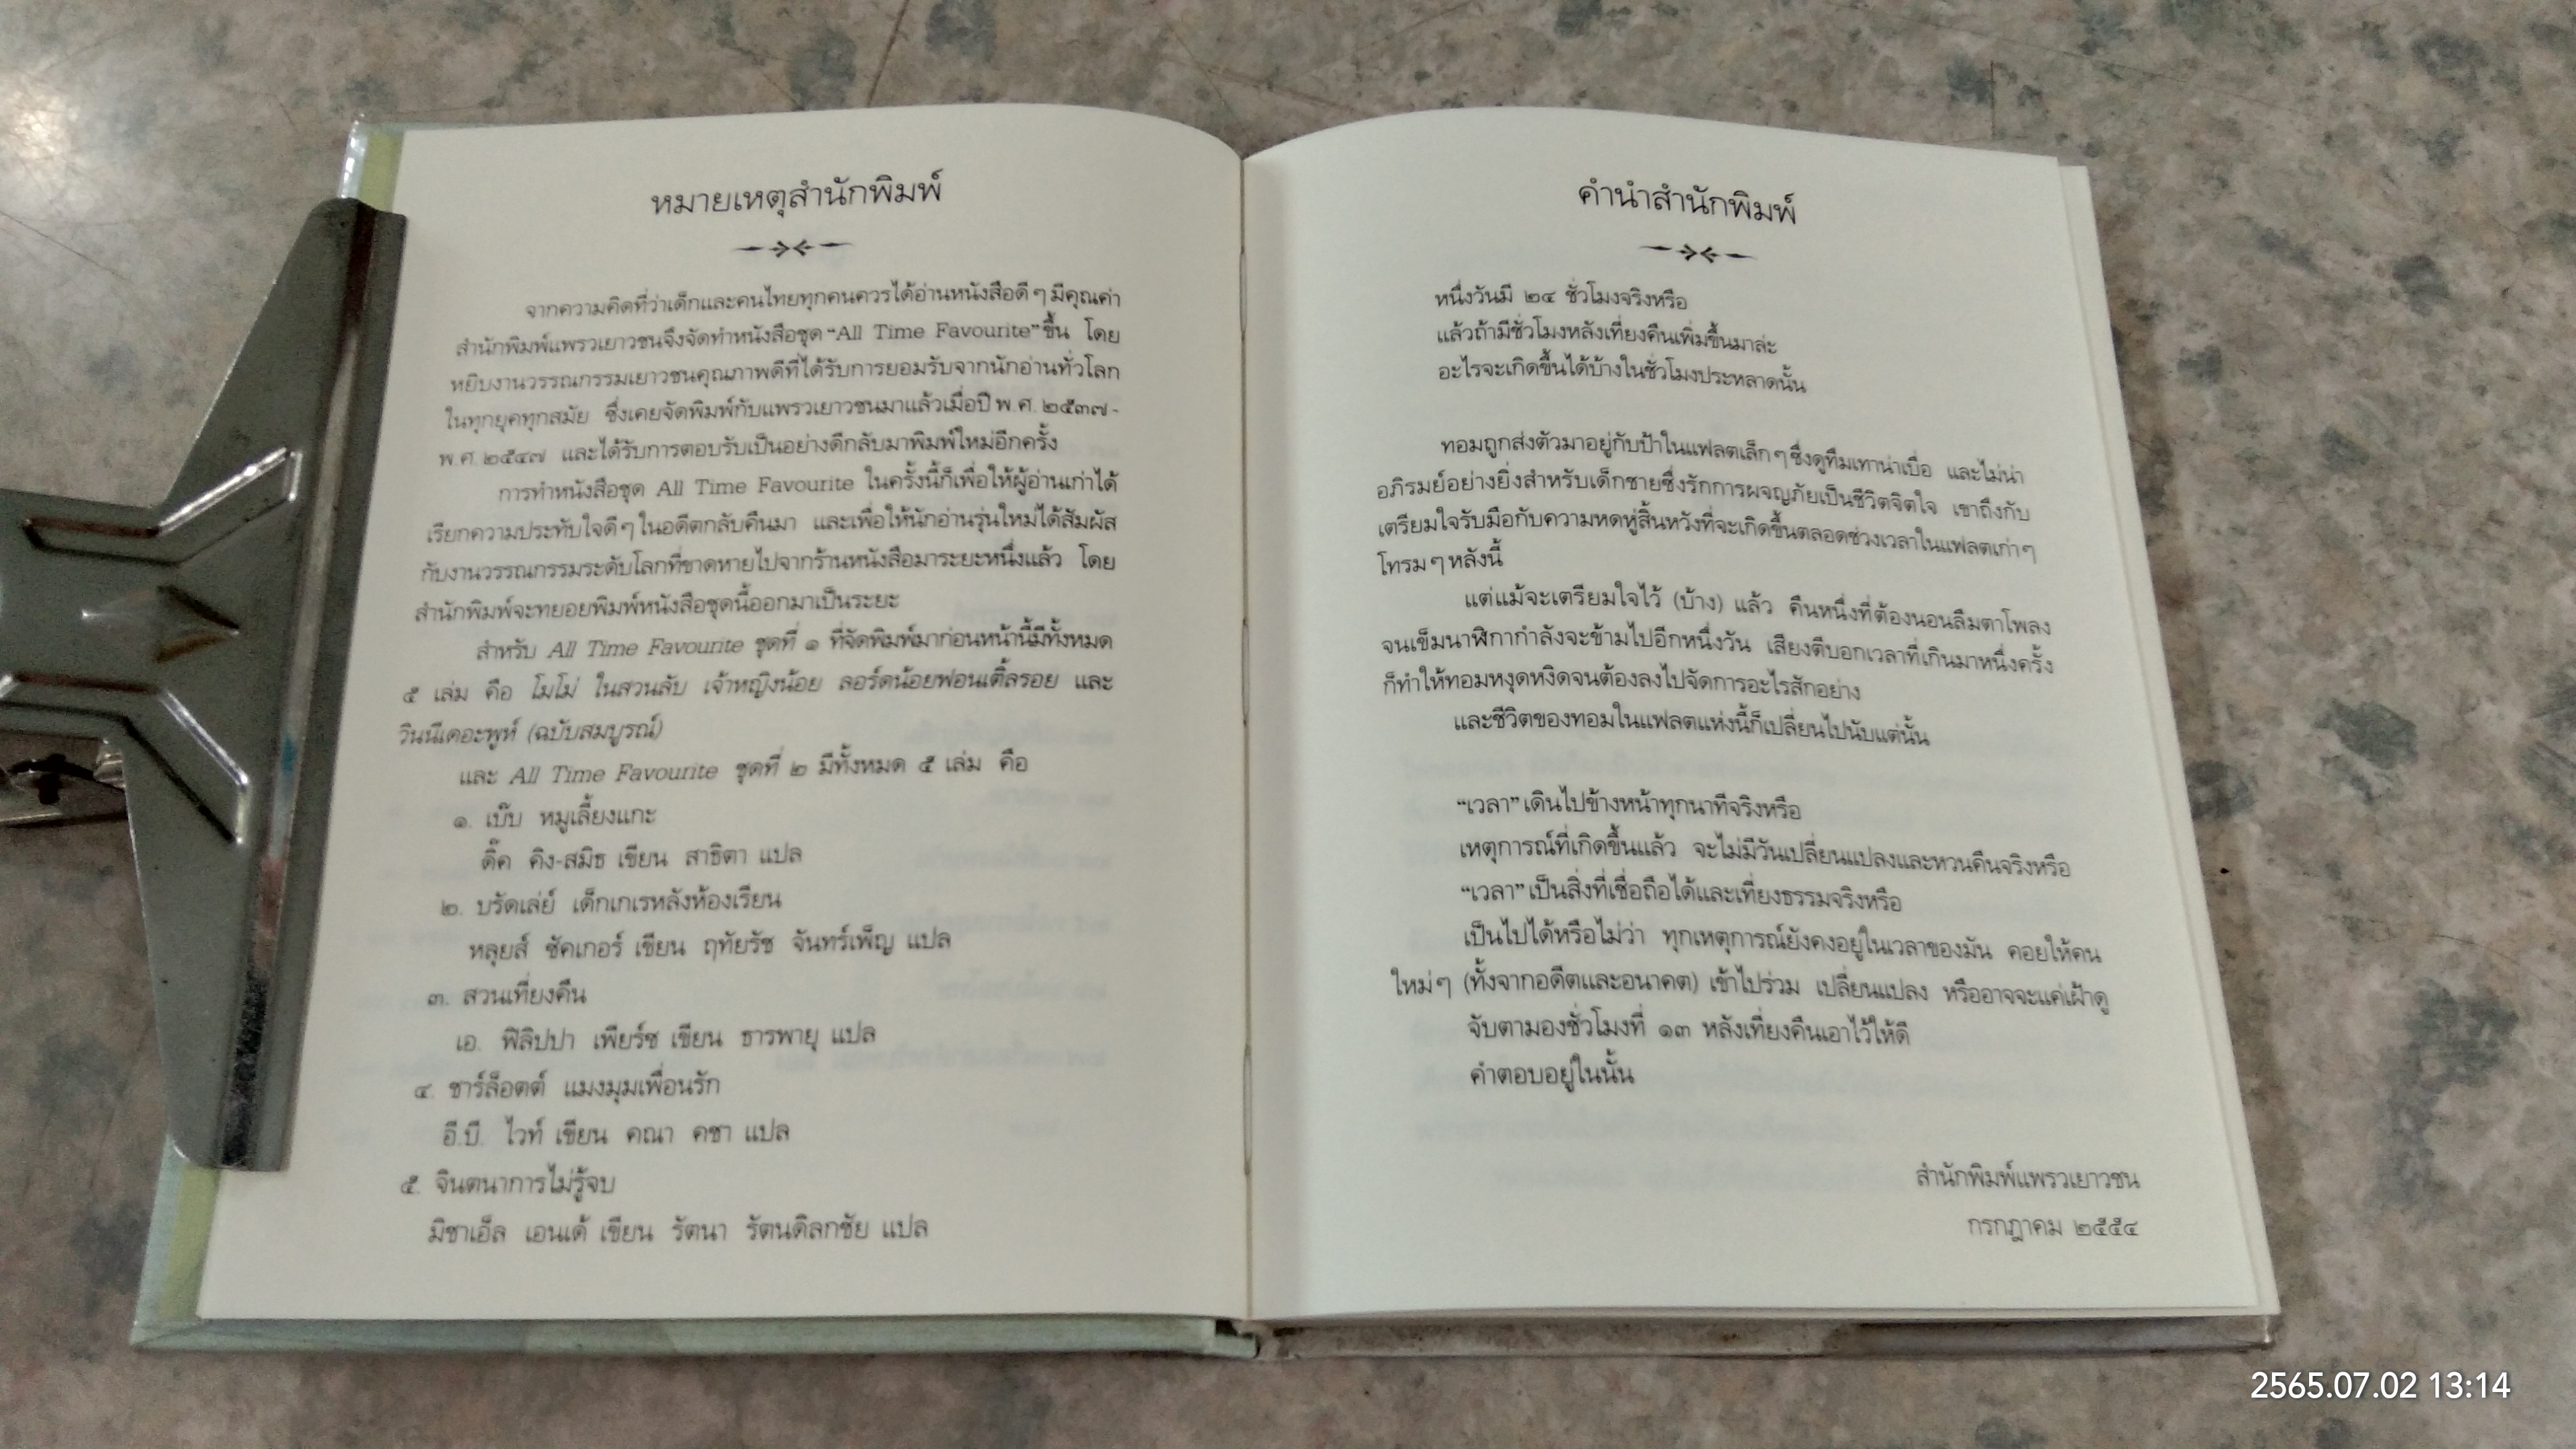 หมายเหตุสำนักพิมพ์
จากความคิดที่ว่าเด็กและคนไทยทุกคนควรได้อ่านหนังสือดีๆ มีคุณค่า
สำนักพิมพ์แพรวเยาวชนจึงจัดทำหนังสือชุด “All Time Favourite” ขึ้น โดย
หยิบงานวรรณกรรมเยาวชนคุณภาพดีที่ได้รับการยอมรับจากนักอ่านทั่วโลก
ในทุกยุคทุกสมัย ซึ่งเคยจัดพิมพ์กับแพรวเยาวชนมาแล้วเมื่อปี พ.ศ. ๒๕๓๗-
พ.ศ. ๒๕๔๗ และได้รับการตอบรับเป็นอย่างดีกลับมาพิมพ์ใหม่อีกครั้ง
การทำหนังสือชุด All Time Favourite ในครั้งนี้ก็เพื่อให้ผู้อ่านเก่าได้
เรียกความประทับใจดีๆ ในอดีตกลับคืนมา และเพื่อให้นักอ่านรุ่นใหม่ได้สัมผัส
กับงานวรรณกรรมระดับโลกที่ขาดหายไปจากร้านหนังสือมาระยะหนึ่งแล้ว โดย
สำนักพิมพ์จะทยอยพิมพ์หนังสือชุดนี้ออกมาเป็นระยะ
สำหรับ All Time Favourite ชุดที่ ๑ ที่จัดพิมพ์มาก่อนหน้านี้มีทั้งหมด
๕ เล่ม คือ โมโม่ ในสวนลับ เจ้าหญิงน้อย ลอร์ดน้อยฟอนเติ้ลรอย และ
วินนีเดอะพูห์ (ฉบับสมบูรณ์)
และ All Time Favourite ชุดที่ ๒ มีทั้งหมด ๕ เล่ม คือ
๑. เบ๊บ หมูเลี้ยงแกะ
ดิ๊ค คิง-สมิธ เขียน สาธิตา แปล
๒. บรัดเล่ย์ เด็กเกเรหลังห้องเรียน
หลุยส์ ซัคเกอร์ เขียน ฤทัยรัช จันทร์เพ็ญ แปล
๓. สวนเที่ยงคืน
เอ. ฟิลิปปา เพียร์ซ เขียน ธารพายุ แปล
๔. ชาร์ล็อตต์ แมงมุมเพื่อนรัก
อี.บี. ไวท์ เขียน คณา คชา แปล
๕. จินตนาการไม่รู้จบ
มิชาเอ็ล เอนเด้ เขียน รัตนา รัตนดิลกชัย แปล
คำนำสำนักพิมพ์
หนึ่งวันมี ๒๔ ชั่วโมงจริงหรือ
แล้วถ้ามีชั่วโมงหลังเที่ยงคืนเพิ่มขึ้นมาล่ะ
อะไรจะเกิดขึ้นได้บ้างในชั่วโมงประหลาดนั้น
ทอมถูกส่งตัวมาอยู่กับป้าในแฟลตเล็กๆ ซึ่งดูทึมเทาน่าเบื่อ และไม่น่า
อภิรมย์อย่างยิ่งสำหรับเด็กชายซึ่งรักการผจญภัยเป็นชีวิตจิตใจ เขาถึงกับ
เตรียมใจรับมือกับความหดหู่สิ้นหวังที่จะเกิดขึ้นตลอดช่วงเวลาในแฟลตเก่าๆ
โทรมๆ หลังนี้
แต่แม้จะเตรียมใจไว้ (บ้าง) แล้ว คืนหนึ่งที่ต้องนอนลืมตาโพลง
จนเข็มนาฬิกากำลังจะข้ามไปอีกหนึ่งวัน เสียงตีบอกเวลาที่เกินมาหนึ่งครั้ง
ก็ทำให้ทอมหงุดหงิดจนต้องลงไปจัดการอะไรสักอย่าง
และชีวิตของทอมในแฟลตแห่งนี้ก็เปลี่ยนไปนับแต่นั้น
“เวลา” เดินไปข้างหน้าทุกนาทีจริงหรือ
เหตุการณ์ที่เกิดขึ้นแล้ว จะไม่มีวันเปลี่ยนแปลงและหวนคืนจริงหรือ
“เวลา” เป็นสิ่งที่เชื่อถือได้และเที่ยงธรรมจริงหรือ
เป็นไปได้หรือไม่ว่า ทุกเหตุการณ์ยังคงอยู่ในเวลาของมัน คอยให้คน
ใหม่ๆ (ทั้งจากอดีตและอนาคต) เข้าไปร่วม เปลี่ยนแปลง หรืออาจจะแค่เฝ้าดู
จับตามองชั่วโมงที่ ๑๓ หลังเที่ยงคืนเอาไว้ให้ดี
คำตอบอยู่ในนั้น
สำนักพิมพ์แพรวเยาวชน
กรกฎาคม ๒๕๕๔
2565.07.02 13:14